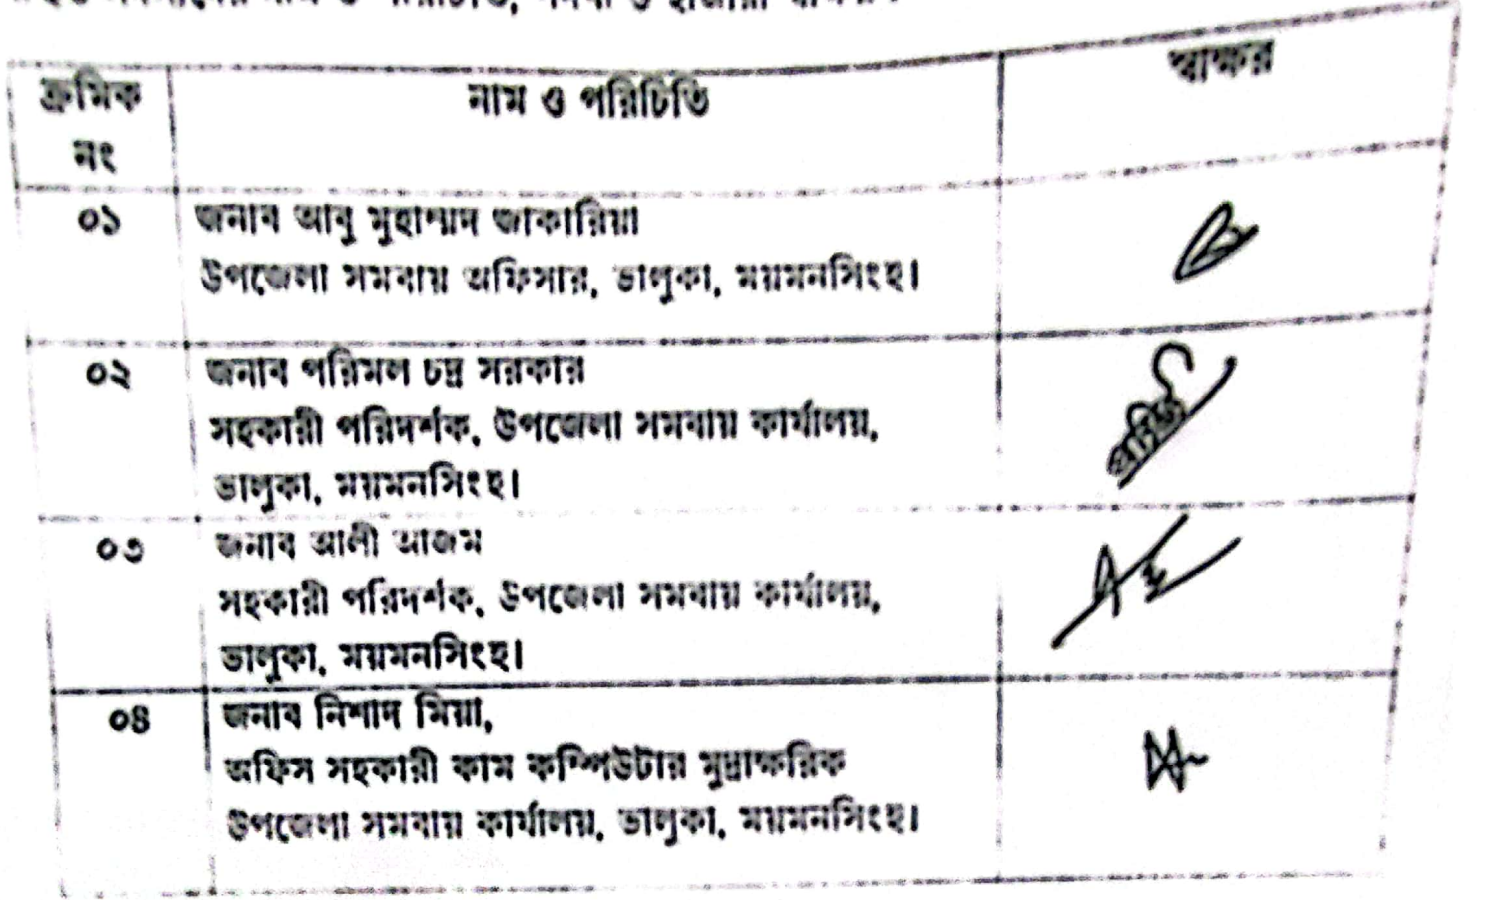 ক্রমিক নং
নাম ও পরিচিতি
স্বাক্ষর
০১
জনাব আবু মুহাম্মদ জাকারিয়া
উপজেলা সমবায় অফিসার, ভালুকা, ময়মনসিংহ।
০২
জনাব পরিমল চন্দ্র সরকার
সহকারী পরিদর্শক, উপজেলা সমবায় কার্যালয়,
ভালুকা, ময়মনসিংহ।
০৩
জনাব আলী আজম
সহকারী পরিদর্শক, উপজেলা সমবায় কার্যালয়,
ভালুকা, ময়মনসিংহ।
০৪
জনাব নিশাদ মিয়া,
অফিস সহকারী কাম কম্পিউটার মুদ্রাক্ষরিক
উপজেলা সমবায় কার্যালয়, ভালুকা, ময়মনসিংহ।